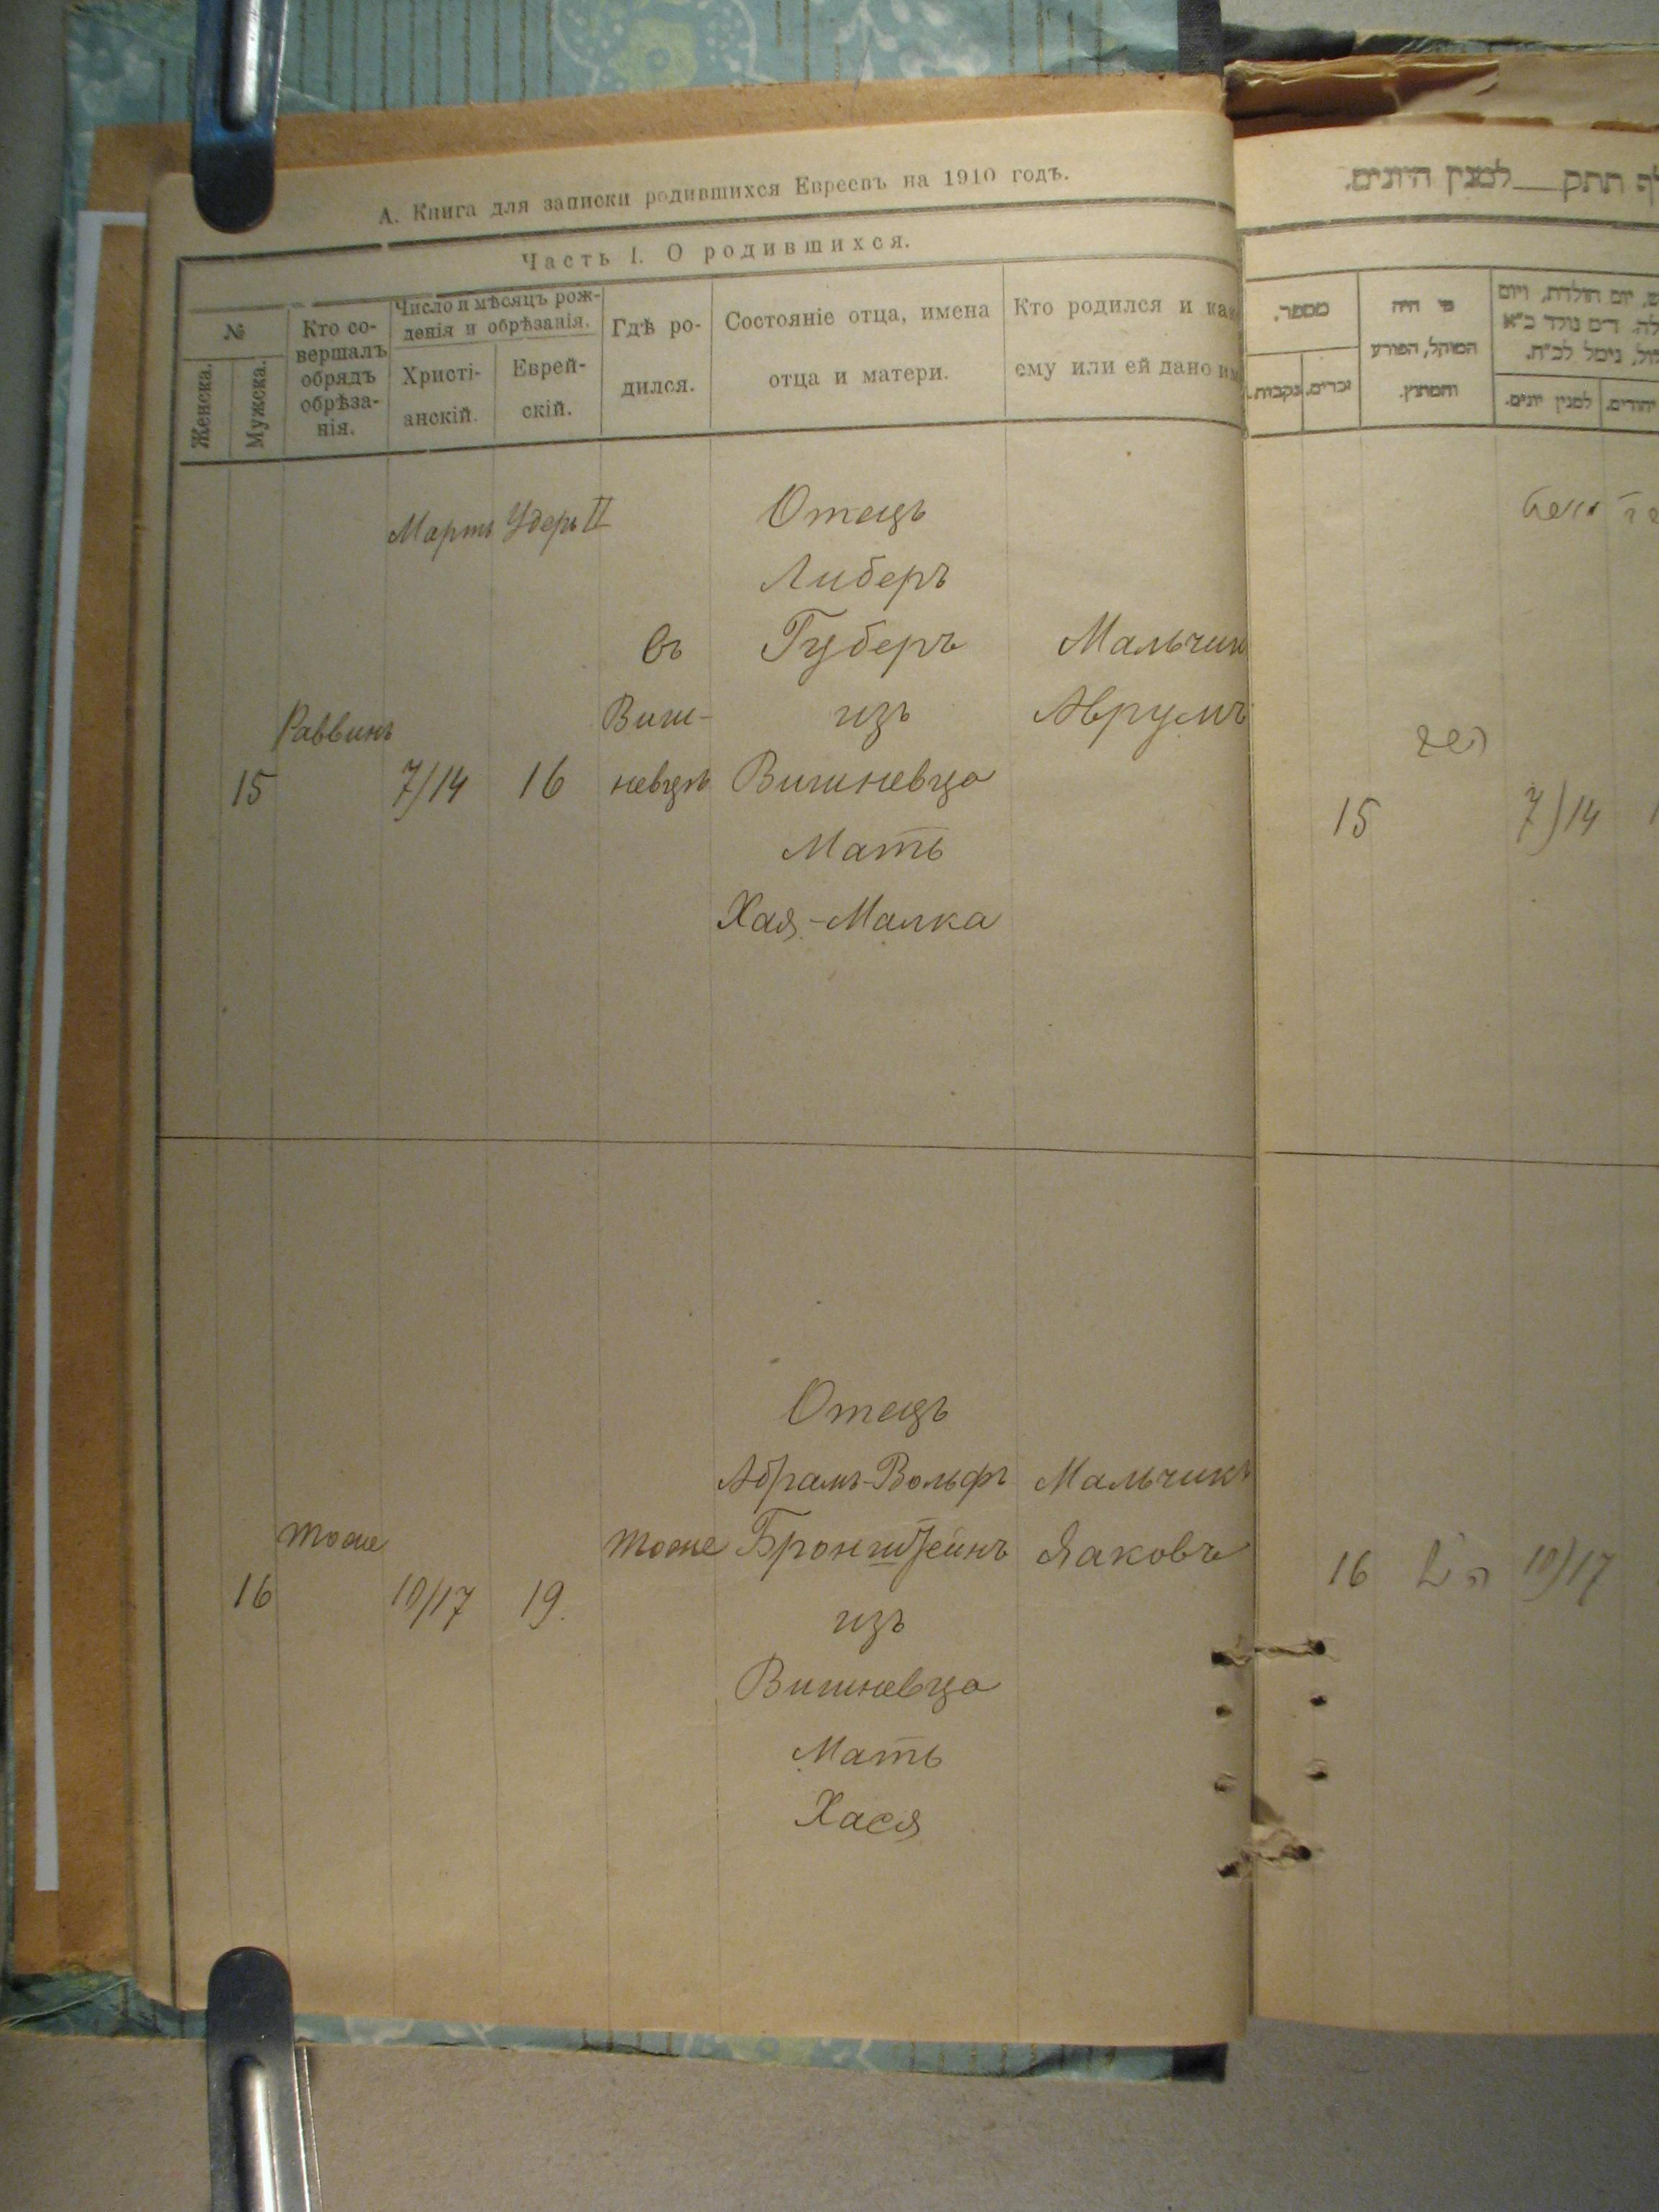 А. Книга для записки родившихся Евреевъ на 1910 годъ.
Часть I. О родившихся.
№
Женска.
Мужска.
Кто со-
вершалъ
обрядъ
обрѣза-
нія.
Число и мѣсяцъ рож-
денія и обрѣзанія.
Христі-
анскій.
Еврей-
скій.
Гдѣ ро-
дился.
Состояніе отца, имена
отца и матери.
Кто родился и как
ему или ей дано им
Мартъ Удеръ II
15
Раввинъ
7/14
16
Въ
Виш-
невцѣ
Отецъ
Либеръ
Губеръ
изъ
Вишневца
Мать
Хая-Малка
Мальчик
Аврумъ
16
тоже
10/17
19.
тоже
Отецъ
Абрамъ-Вольфъ
Бронштейнъ
изъ
Вишневца
Мать
Хася
Мальчикъ
Яаковъ
לף תתק למנין היונים.
מספר.
זכרים.
נקבות.
מי היה
המוהל, הפורע
והמוצץ.
למנין יונים.
יהודים.
15
7/14
16
10/17